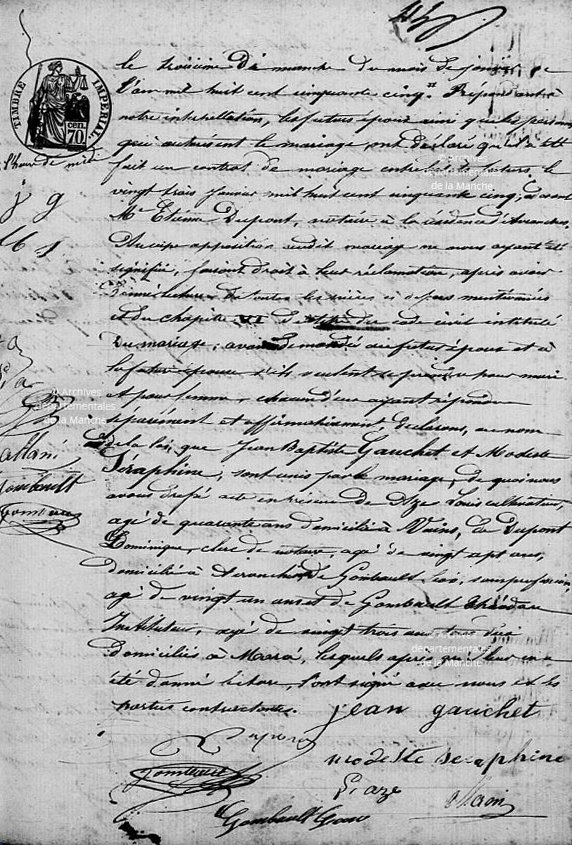 le troisième Dimanche du mois de janvier de
l'an mil huit cent cinquante cinq. Répondant à
notre interpellation, les futurs époux ainsi que les personnes
qui autorisent le mariage ont déclaré qu'il a été
fait un contrat de mariage entre les futurs le
vingt trois janvier mil huit cent cinquante cinq, devant
Me Etienne Dupont, notaire à la résidence d'Avranches.
Aucune opposition audit mariage ne nous ayant été
signifiée, faisant droit à leur réclamation, après avoir
donné lecture de toutes les pièces ci dessus mentionnées
et du chapitre VI du code civil intitulé
Du mariage, avons demandé au futur époux et à
la future épouse s'ils veulent se prendre pour mari
et pour femme, chacun d'eux ayant répondu
séparément et affirmativement déclarons, au nom
de la loi, que Jean Baptiste Gauchet et Modeste
Séraphine, sont unis par le mariage, de quoi nous
avons dressé acte en présence De Aze Louis cultivateur,
agé de quarante ans domicilié à Vains, de Dupont
Dominique, clerc de notaire, agé de vingt sept ans,
domicilié à Avranches de Gombault, sans profession,
agé de vingt un ans et de Gombault Théodore
Instituteur, agé de vingt trois ans
domiciliés à Marcé, lesquels après que lecture en a
été donné lecture, l'ont signé avec nous et les
parties contractantes. jean gauchet
TIMBRE IMPERIAL
70 cen.
l'heure de midi
j g
allain
Gombault
Gombault
Dupont
modeste seraphine
Gombault
L aze
allain
Gombault
© Archives
départementales
de la Manche
© Archives
départementales
de la Manche
© Archives
départementales
de la Manche